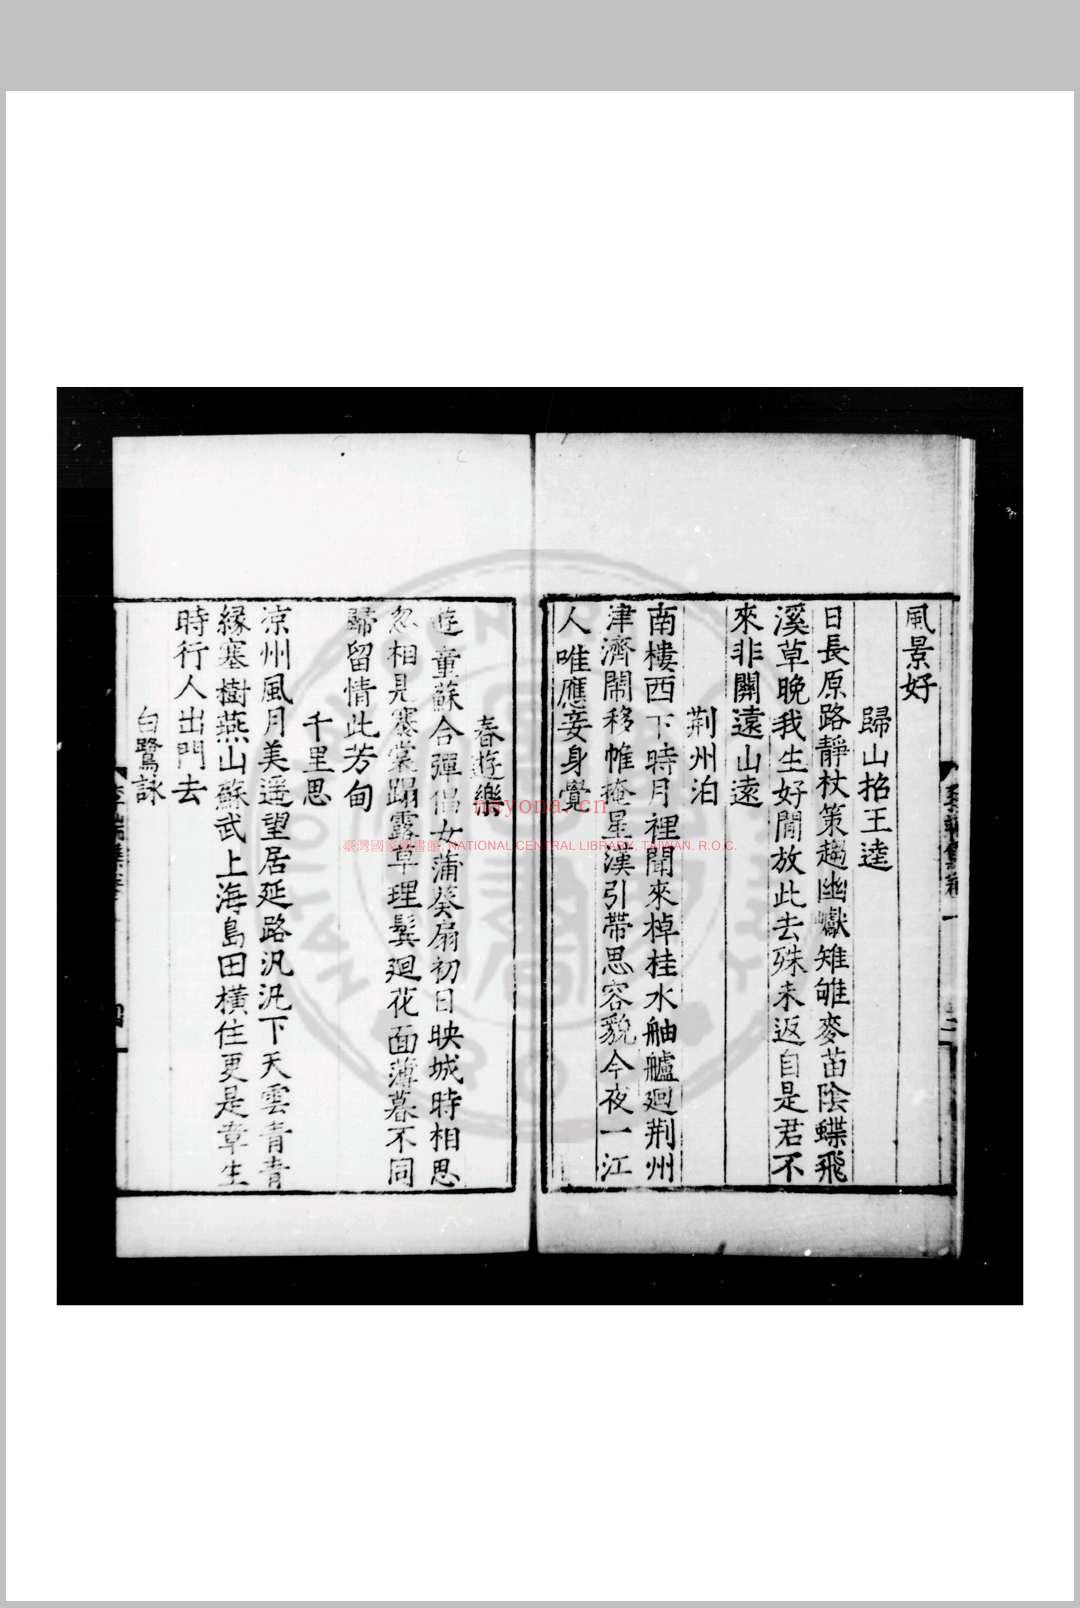 風景好
歸山招王逵
日長原路靜杖策趨幽巘雉雊麥苗陰蝶飛
溪草晚我生好閒放此去殊未返自是君不
來非關遠山遠
荆州泊
南樓西下時月裡聞來棹桂水舳艫廻荆州
津濟鬧移帷掩星漢引帶思容貌今夜一江
人唯應妾身覺
春遊樂
遊童蘇合彈倡女蒲葵扇初日映城時相思
忽相見褰裳蹋露草理鬢廻花面薄暮不同
歸留情此芳甸
千里思
凉州風月美遥望居延路汎汎下天雲青青
緣塞樹燕山蘇武上海島田橫住更是草生
時行人出門去
白鷺詠
李端集卷一
四
nnyona.cn
臺灣國家圖書館, NATIONAL CENTRAL LIBRARY, TAIWAN, R.O.C.